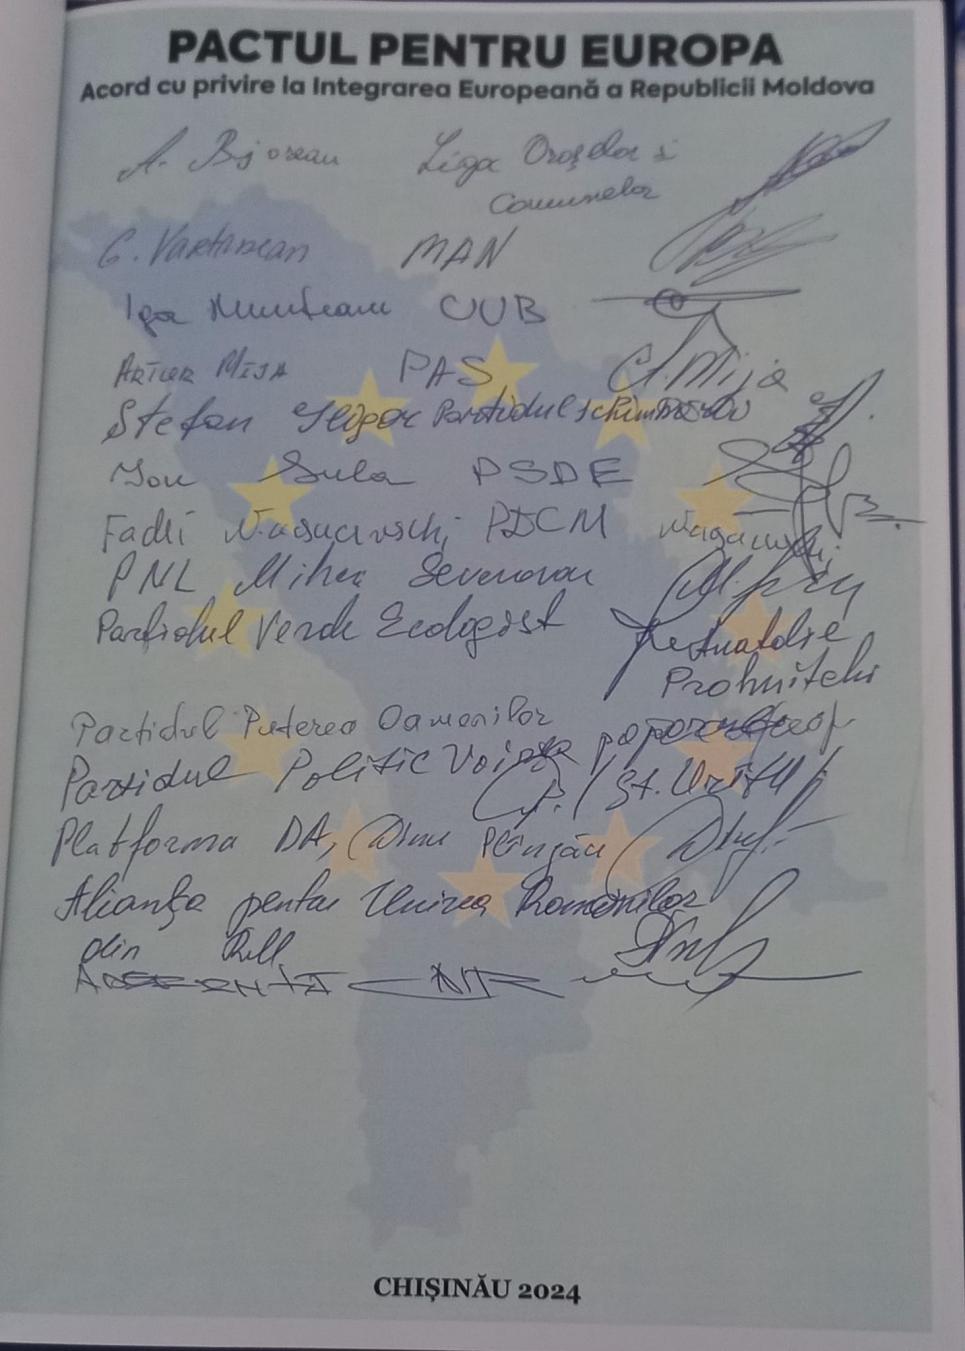 PACTUL PENTRU EUROPA
Acord cu privire la Integrarea Europeană a Republicii Moldova
A. Bejorean Liga Orașelor și
Comunelor
G. Vartanean MAN
Igor Munteanu CUB
ARTUR MIJA PAS A. Mija
Stefan Gligor Partidul Schimbării
Ion Sula PSDE
Fadei Nagacevschi PDCM Nagacevschi
PNL Mihai Severovan
Partidul Verde Ecologist Anatolie
Prohnițchi
Partidul Puterea Oamenilor
Partidul Politic Voința St. Urîtu
Platforma DA, Dinu Plîngău
Alianța pentru Unirea Românilor
din
CHIȘINĂU 2024